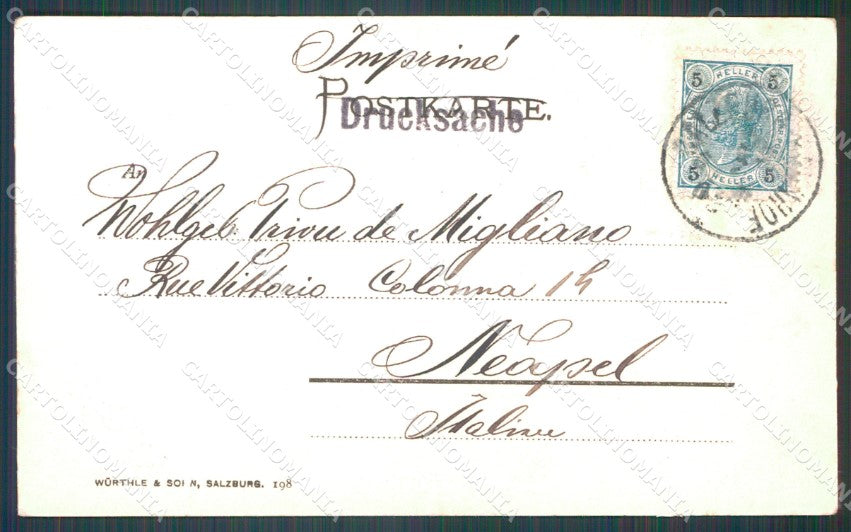 Imprimé
POSTKARTE.
Drucksache
5 HELLER 5
5 HELLER 5
HOF
An
Wohlgeb. de Migliano
Rue Vittorio Colonna 14
Neapel
Italien
WÜRTHLE & SOHN, SALZBURG. 198
CARTOLINOMANIA